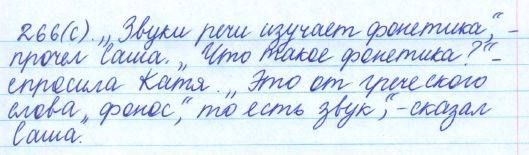 266(с). „Звуки речи изучает фонетика“, -
прочел Саша. „Что такое фонетика?“ -
спросила Катя. „Это от греческого
слова „фонос“, то есть звук“, - сказал
Саша.